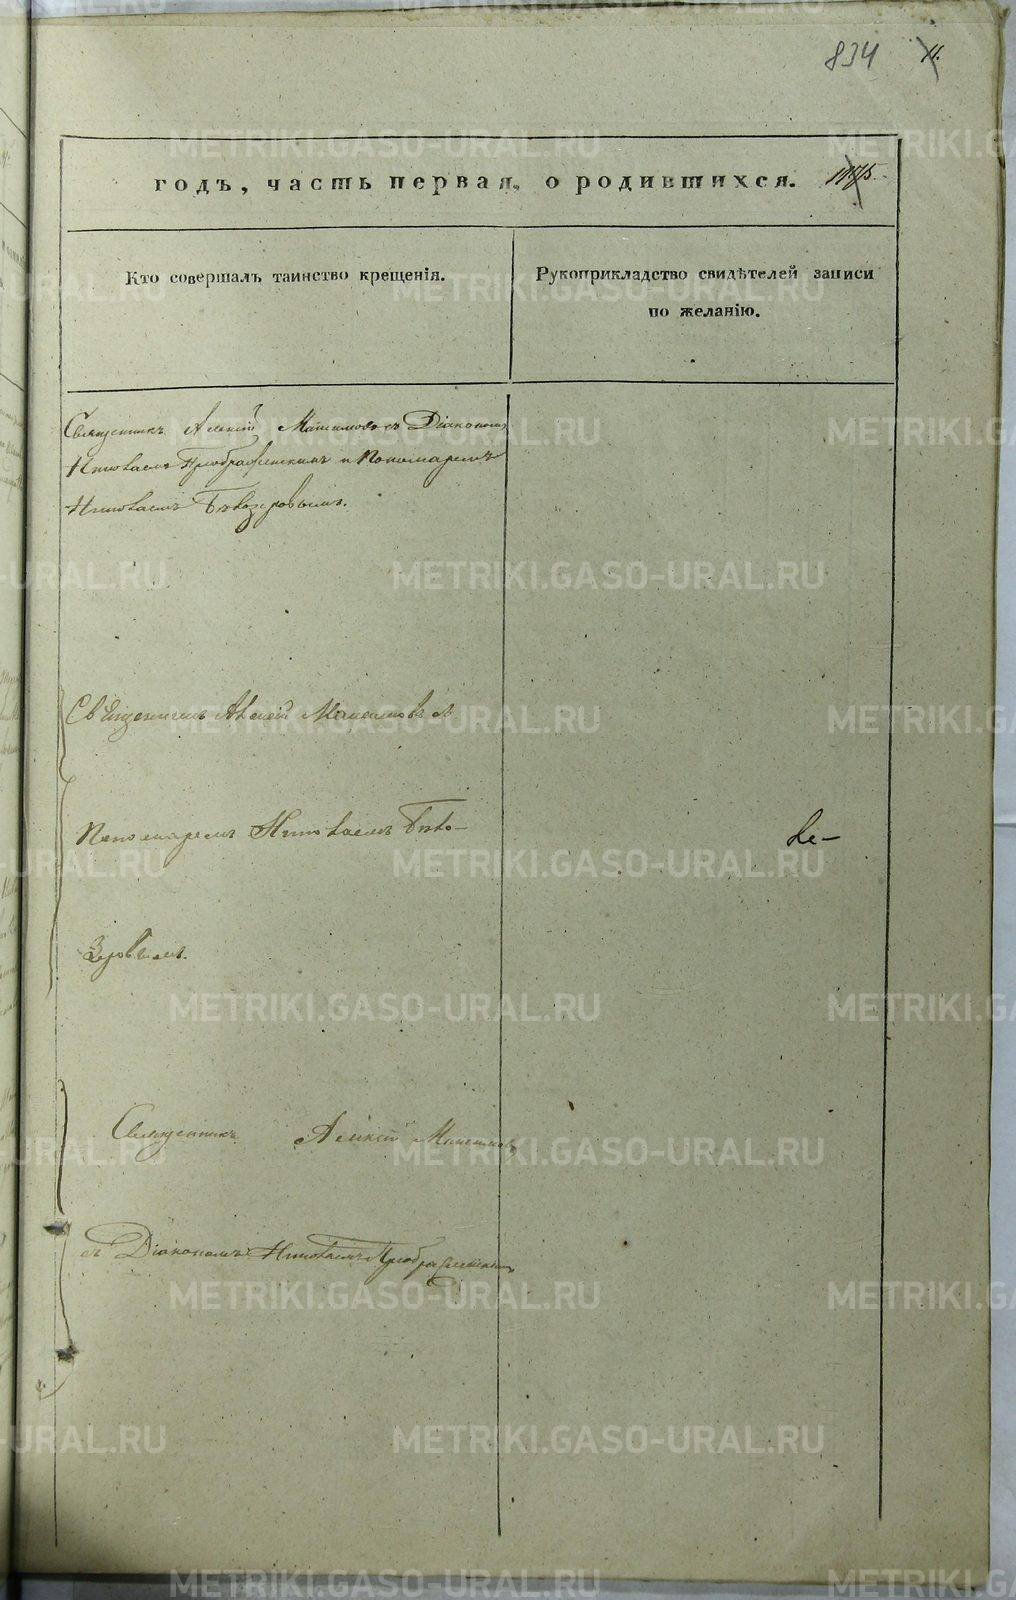 834
11.
годъ, часть первая, о родившихся.
Кто совершалъ таинство крещенія.
Рукоприкладство свидѣтелей записи
по желанію.
Священникъ Алексій Максимовъ съ Діакономъ
Николаемъ Преображенскимъ и Пономаремъ
Николаемъ Бѣлозеровымъ.
Священникъ Алексій Максимовъ съ
Пономаремъ Николаемъ Бѣло-
зеровымъ.
Священникъ Алексій Максимовъ
съ Діакономъ Николаемъ Преображенскимъ
METRIKI.GASO-URAL.RU